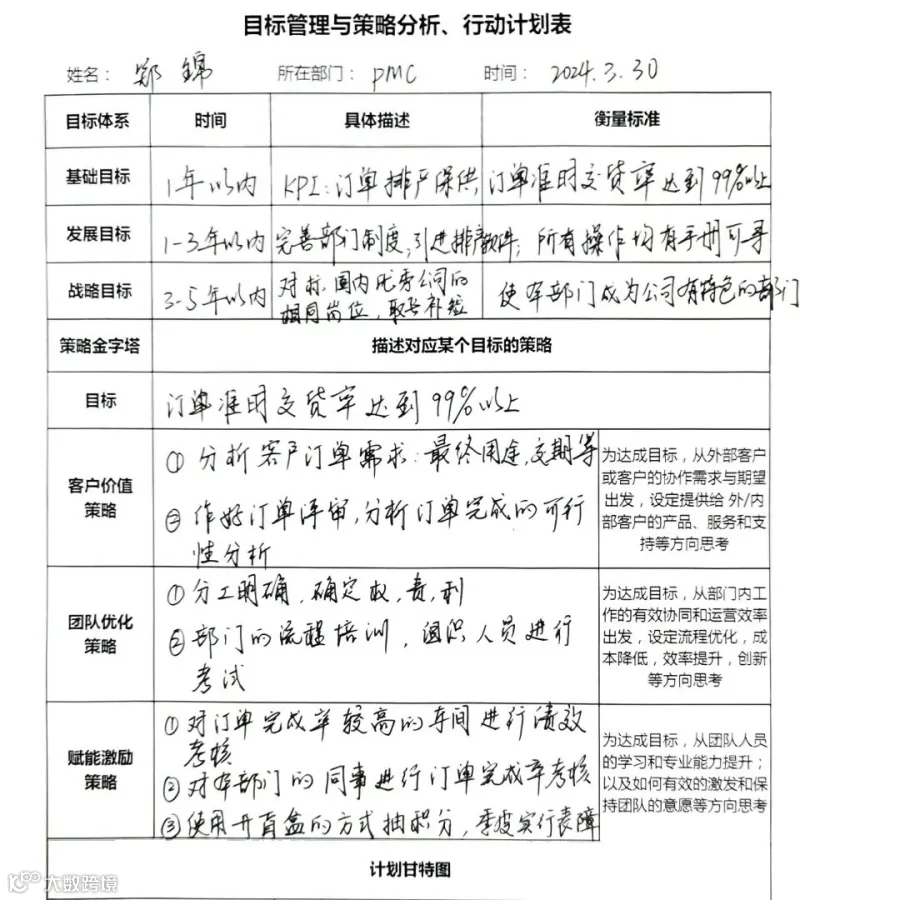 目标管理与策略分析、行动计划表
姓名： 郑锦 所在部门： PMC 时间： 2024.3.30
目标体系 时间 具体描述 衡量标准
基础目标 1年以内 KPI：订单排产保供 订单准时交货率达到99%以上
发展目标 1-3年以内 完善部门制度，引进排产软件； 所有操作均有手册可寻
战略目标 3-5年以内 对标国内优秀公司的 使本部门成为公司有特色的部门
相同岗位，取长补短
策略金字塔 描述对应某个目标的策略
目标 订单准时交货率达到99%以上
客户价值
策略
① 分析客户订单需求：最终用途，交期等
② 作好订单评审，分析订单完成的可行
性分析
为达成目标，从外部客户
或客户的协作需求与期望
出发，设定提供给 外/内
部客户的产品、服务和支
持等方向思考
团队优化
策略
① 分工明确，确定权，责，利
② 部门的流程培训，组织人员进行
考试
为达成目标，从部门内工
作的有效协同和运营效率
出发，设定流程优化，成
本降低，效率提升，创新
等方向思考
赋能激励
策略
① 对订单完成率较高的车间进行绩效
考核
② 对本部门的同事进行订单完成率考核
③ 使用开盲盒的方式抽积分，季度实行表障
为达成目标，从团队人员
的学习和专业能力提升；
以及如何有效的激发和保
持团队的意愿等方向思考
计划甘特图
大数跨境